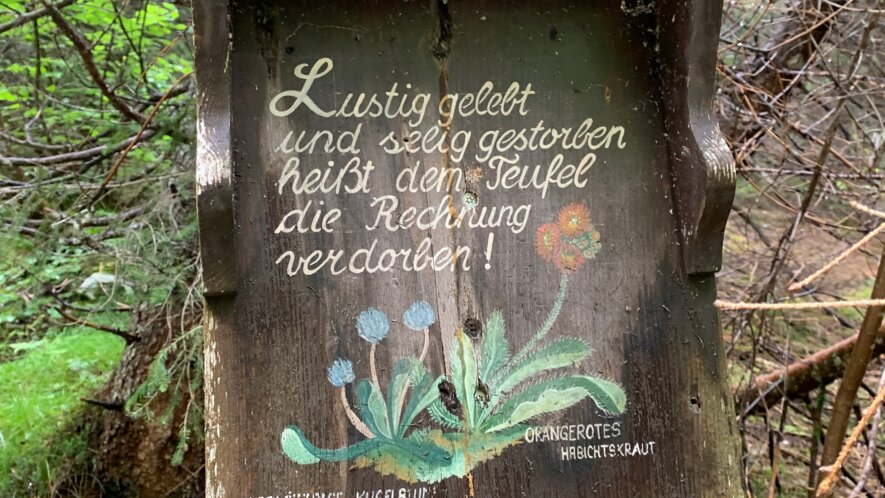 Lustig gelebt
und selig gestorben
heißt dem Teufel
die Rechnung
verdorben!
ORANGEROTES
HABICHTSKRAUT